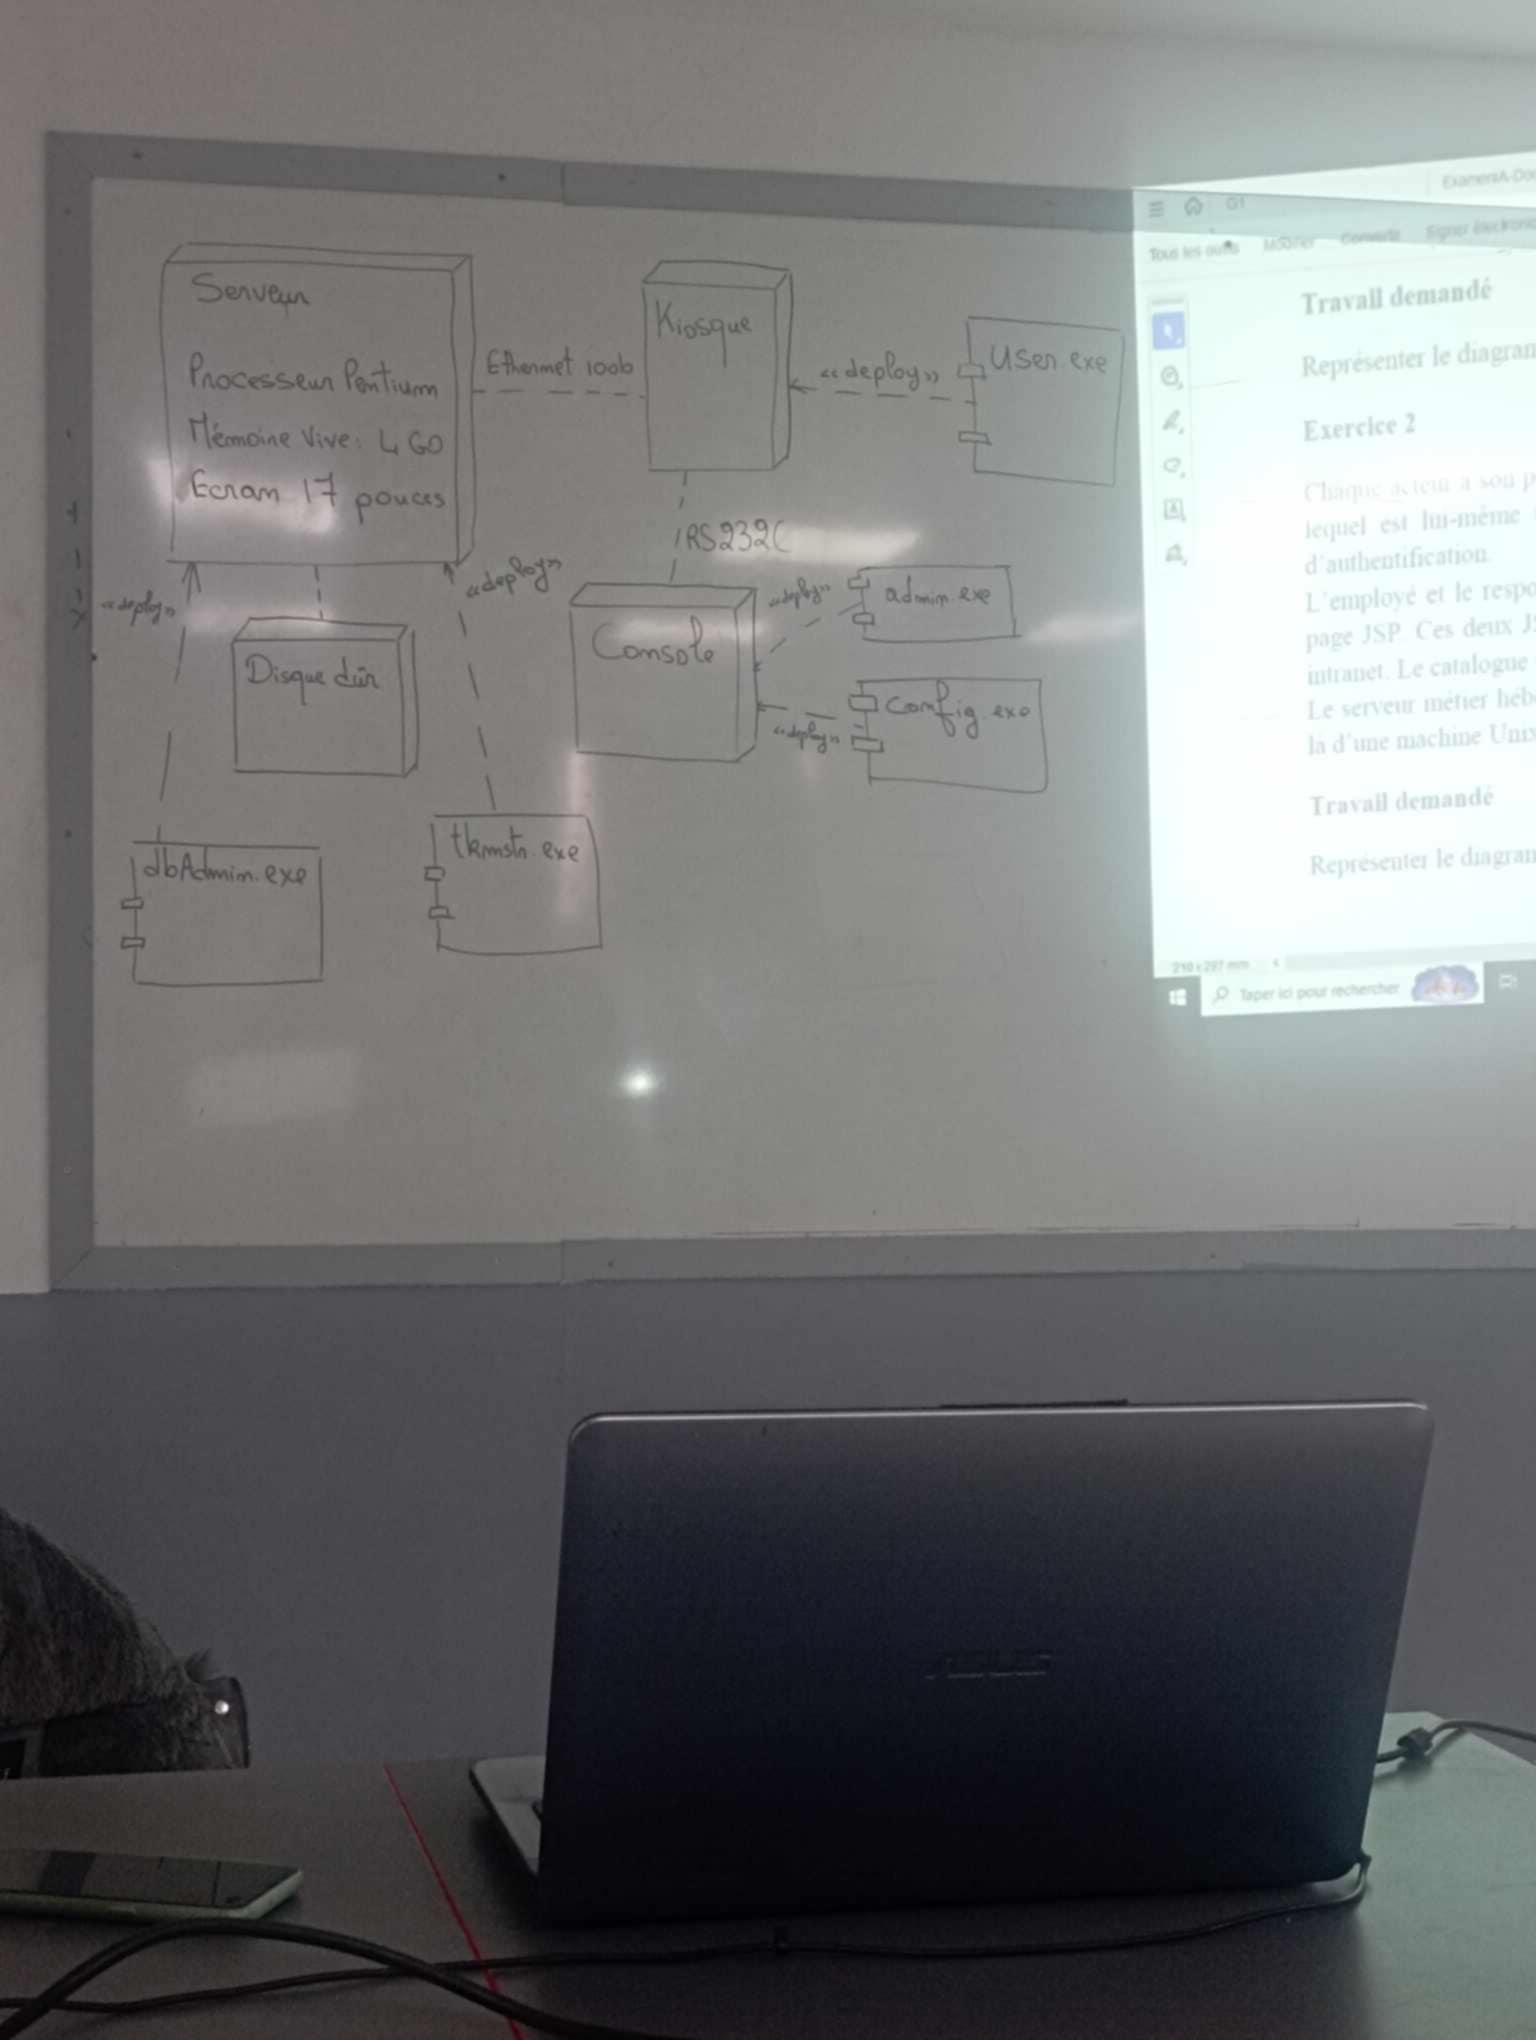 Serveur
Processeur Pentium
Mémoire Vive: 4 GO
Ecran 17 pouces
Ethernet 100b
Kiosque
«deploy»
User.exe
RS232C
«deploy»
«deploy»
Disque dûr
Console
«deploy»
admin.exe
«deploy»
config.exe
dbAdmin.exe
tkmstr.exe
ExamenIA-Doc
G1
Tous les outils Modifier Convertir Signer électroniq
Travail demandé
Représenter le diagram
Exercice 2
Chaque acteur a son p
lequel est lui-même
d'authentification.
L'employé et le respo
page JSP. Ces deux JS
intranet. Le catalogue
Le serveur métier héb
là d'une machine Unix
Travail demandé
Représenter le diagram
210 x 297 mm
Taper ici pour rechercher
ASUS